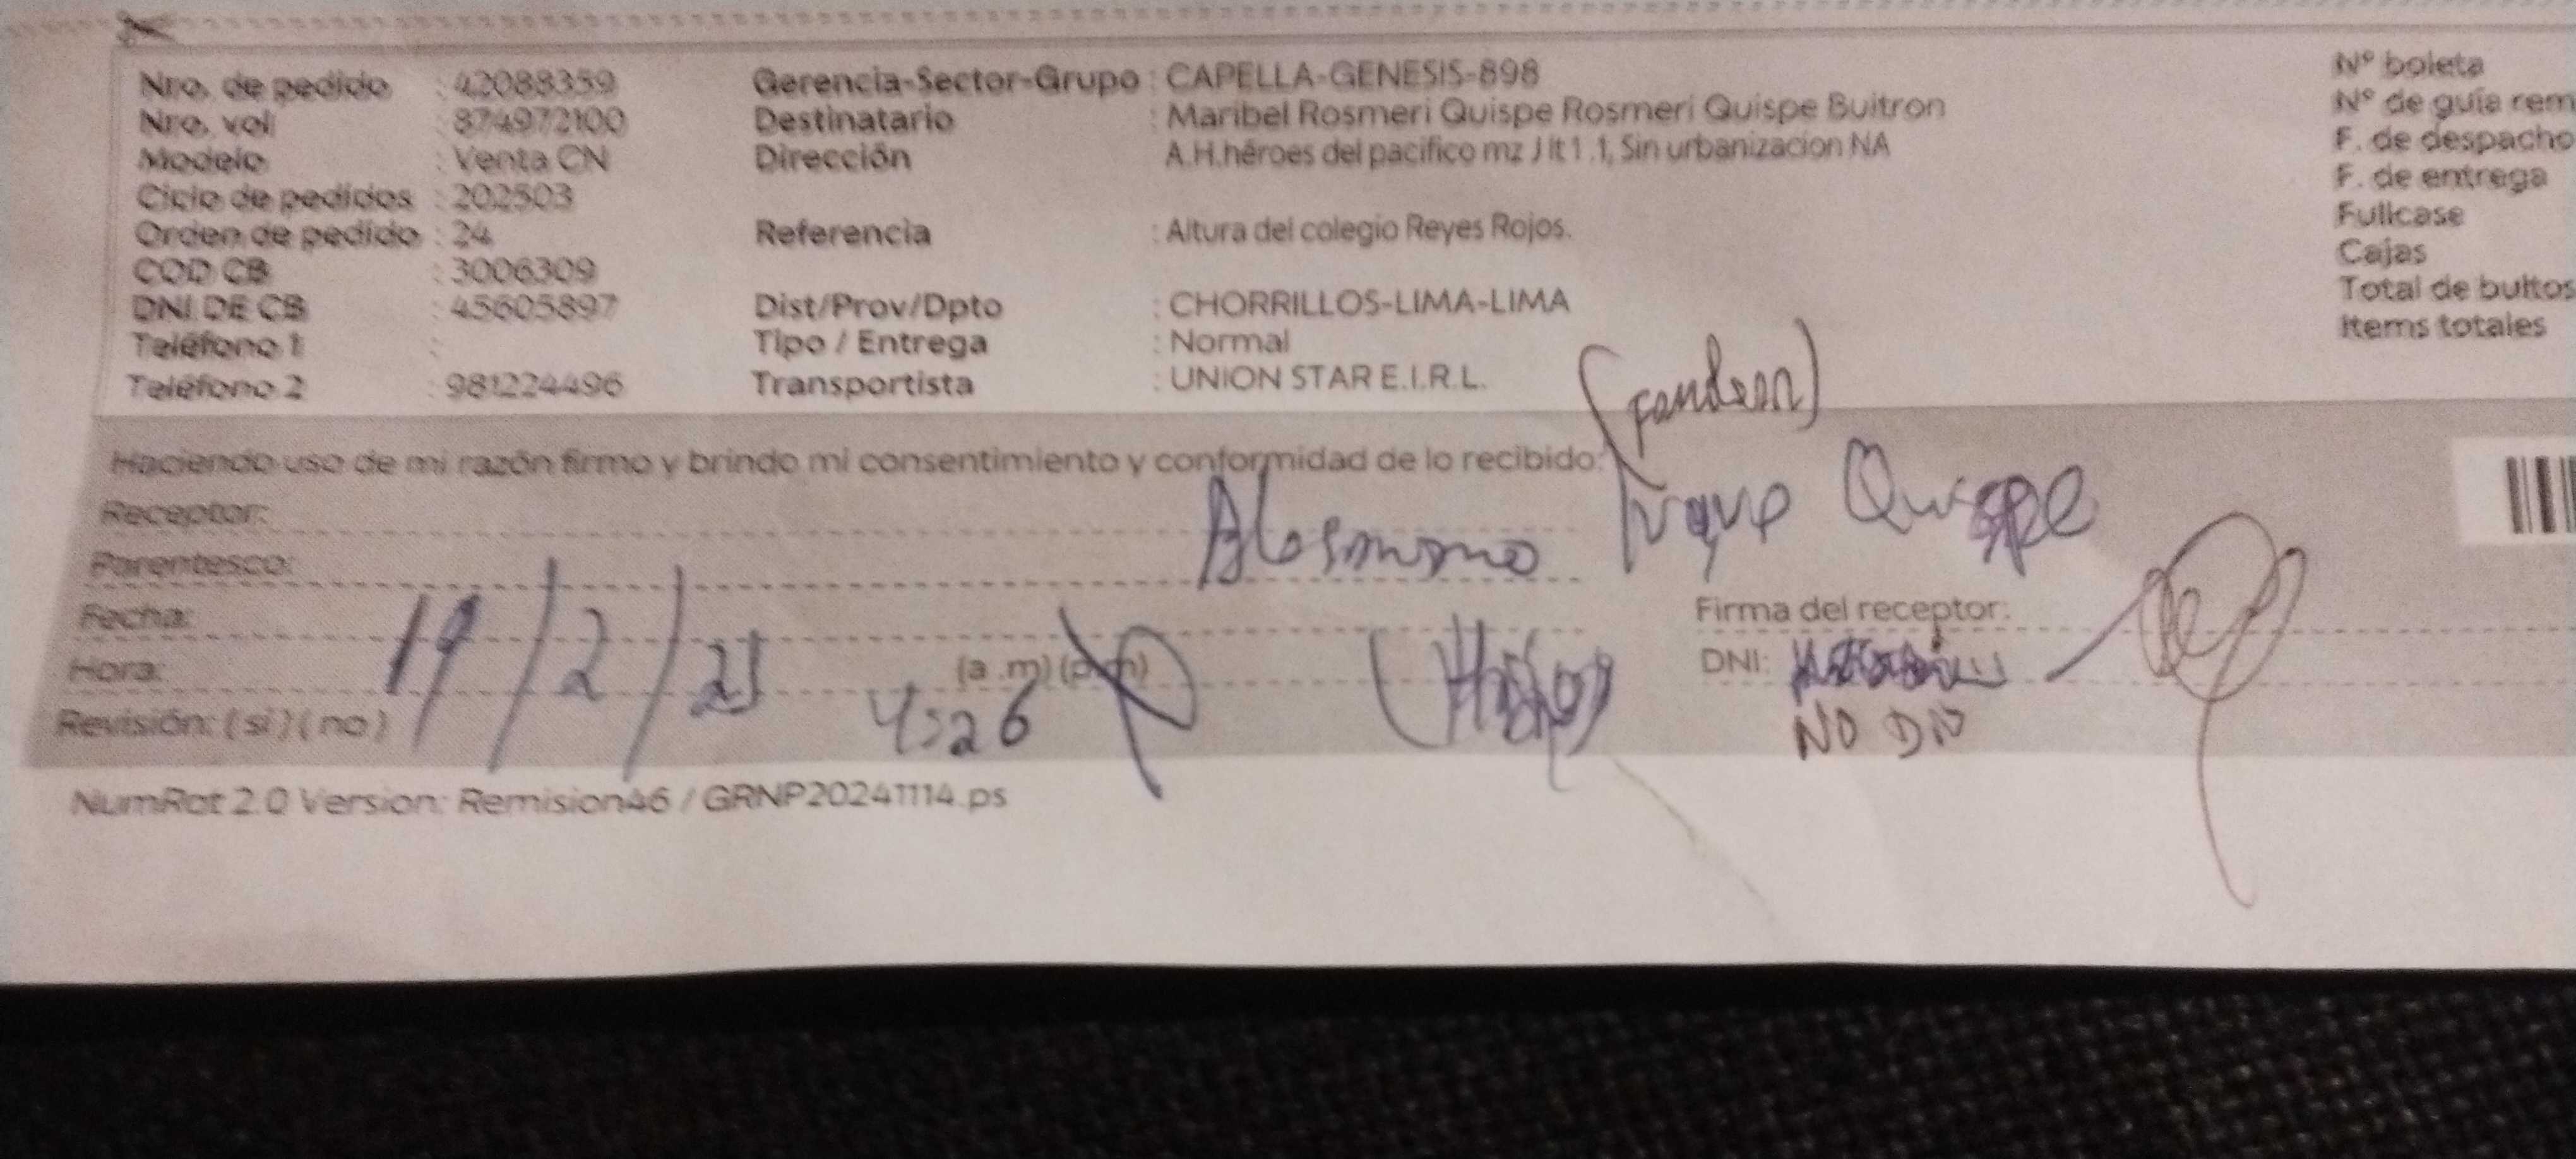 Nro. de pedido : 42088359
Nro. vol : 874972100
Modelo : Venta CN
Ciclo de pedidos : 202503
Orden de pedido : 24
COD CB : 3006309
DNI DE CB : 45605897
Teléfono 1 :
Teléfono 2 : 981224496
Gerencia-Sector-Grupo : CAPELLA-GENESIS-898
Destinatario : Maribel Rosmeri Quispe Rosmeri Quispe Buitron
Dirección A.H.héroes del pacifico mz J lt 1 .1, Sin urbanizacion NA
Referencia : Altura del colegio Reyes Rojos.
Dist/Prov/Dpto : CHORRILLOS-LIMA-LIMA
Tipo / Entrega : Normal
Transportista : UNION STAR E.I.R.L.
Nº boleta
Nº de guía rem
F. de despacho
F. de entrega
Fullcase
Cajas
Total de bultos
Items totales
Haciendo uso de mi razón firmo y brindo mi consentimiento y conformidad de lo recibido:
Receptor: Quispe
Parentesco:
Fecha: 19/2/25
Hora: 4:26 (a .m) (p.m)
Revisión: ( si ) ( no )
Firma del receptor:
DNI:
NO DN
NumRot 2.0 Version: Remision46 / GRNP20241114.ps